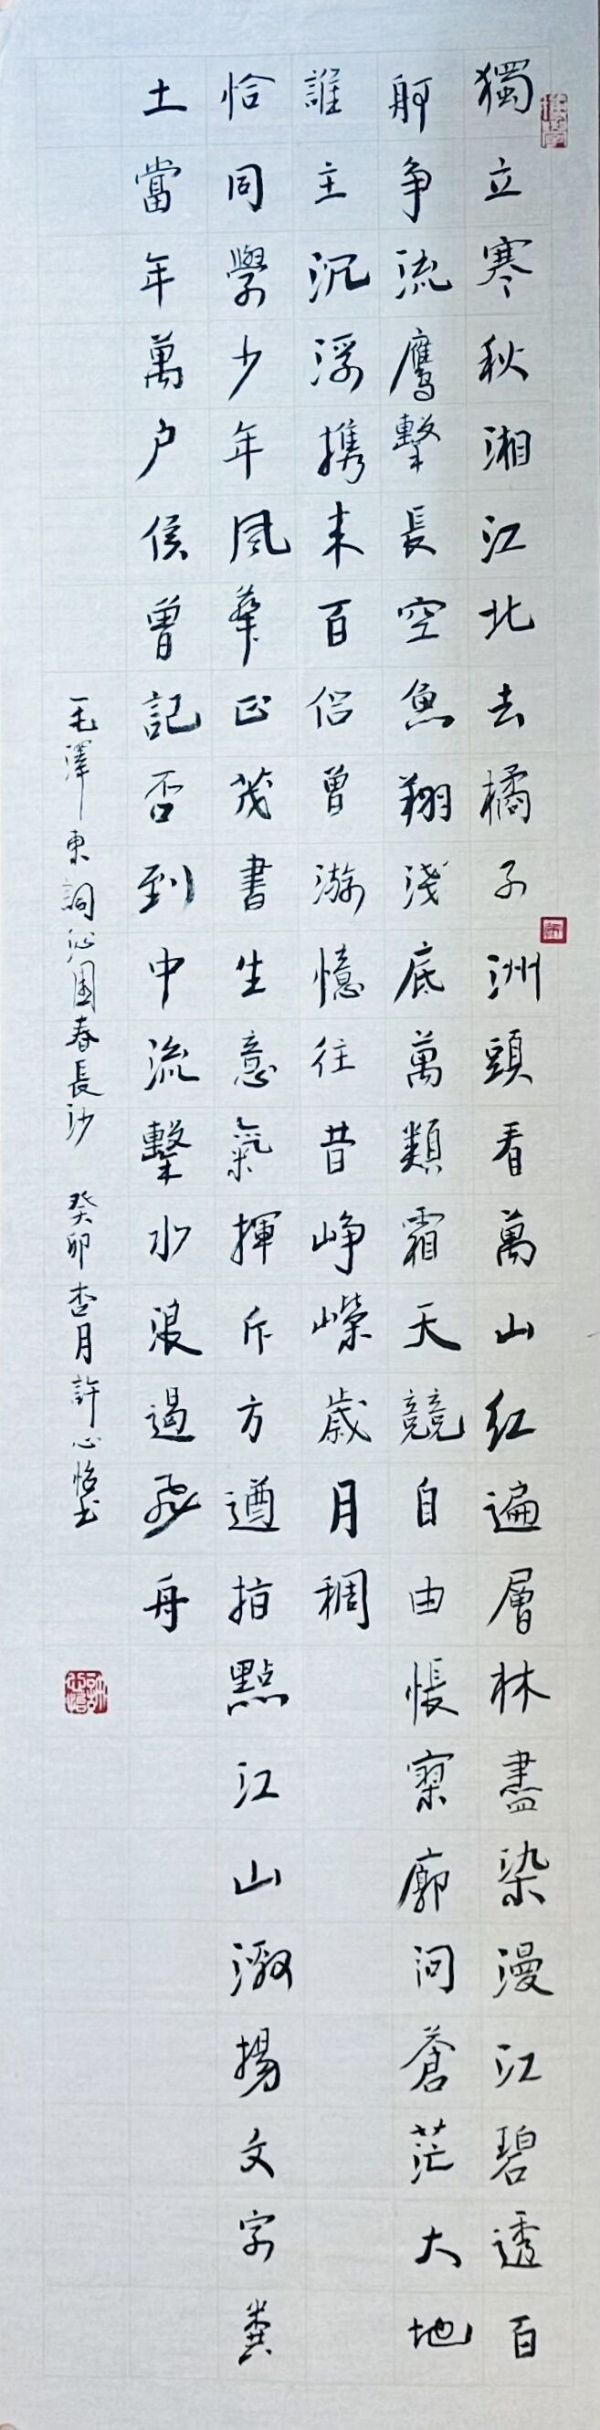 獨立寒秋湘江北去橘子洲頭看萬山紅遍層林盡染漫江碧透百
舸争流鷹擊長空魚翔淺底萬類霜天競自由悵寥廓问蒼茫大地
誰主沉浮攜来百侣曾游憶往昔崢嶸歲月稠
恰同學少年風華正茂書生意氣揮斥方遒指點江山激揚文字糞
土當年萬户侯曾記否到中流擊水浪遏飛舟
毛澤東詞沁園春長沙 癸卯杏月許心怡書